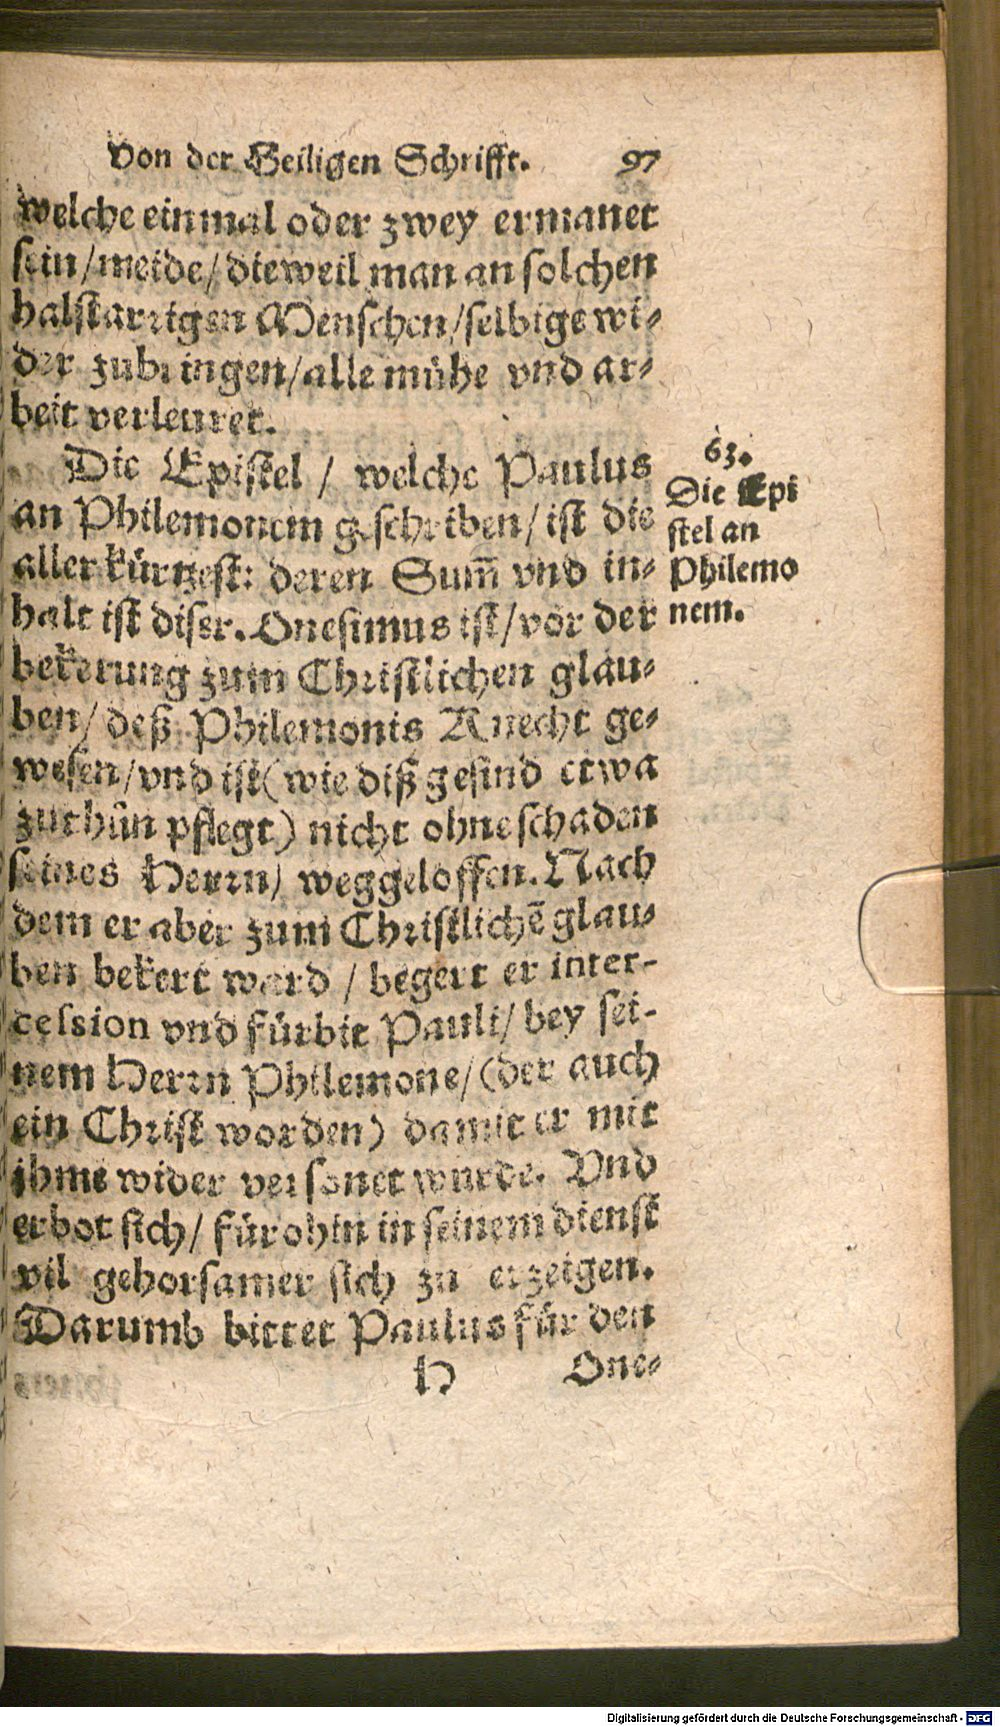 Von der Heiligen Schrifft. 97
welche einmal oder zwey ermanet
sein/meide/dieweil man an solchen
halstarrigen Menschen/selbige wi-
der zubringen/alle mühe vnd ar-
beit verleuret.
Die Epistel / welche Paulus
an Philemonem geschriben/ist die
allerkürtzest: deren Sum̃ vnd in-
halt ist diser. Onesimus ist/vor der
bekerung zum Christlichen glau-
ben/deß Philemonis Knecht ge-
wesen/vnd ist (wie diß gesind etwa
zuthůn pflegt) nicht ohne schaden
seines Herrn/ weggeloffen. Nach
dem er aber zum Christlichẽ glau-
ben bekert ward / begert er inter-
cession vnd fürbit Pauli/ bey sei-
nem Herrn Philemone/(der auch
ein Christ worden) damit er mit
jhme wider versonet wurde. Vnd
erbot sich/ fürohin in seinem dienst
vil gehorsamer sich zu erzeigen.
Darumb bittet Paulus für den
H One-
63.
Die Epi
stel an
Philemo
nem.
Digitalisierung gefördert durch die Deutsche Forschungsgemeinschaft - DFG